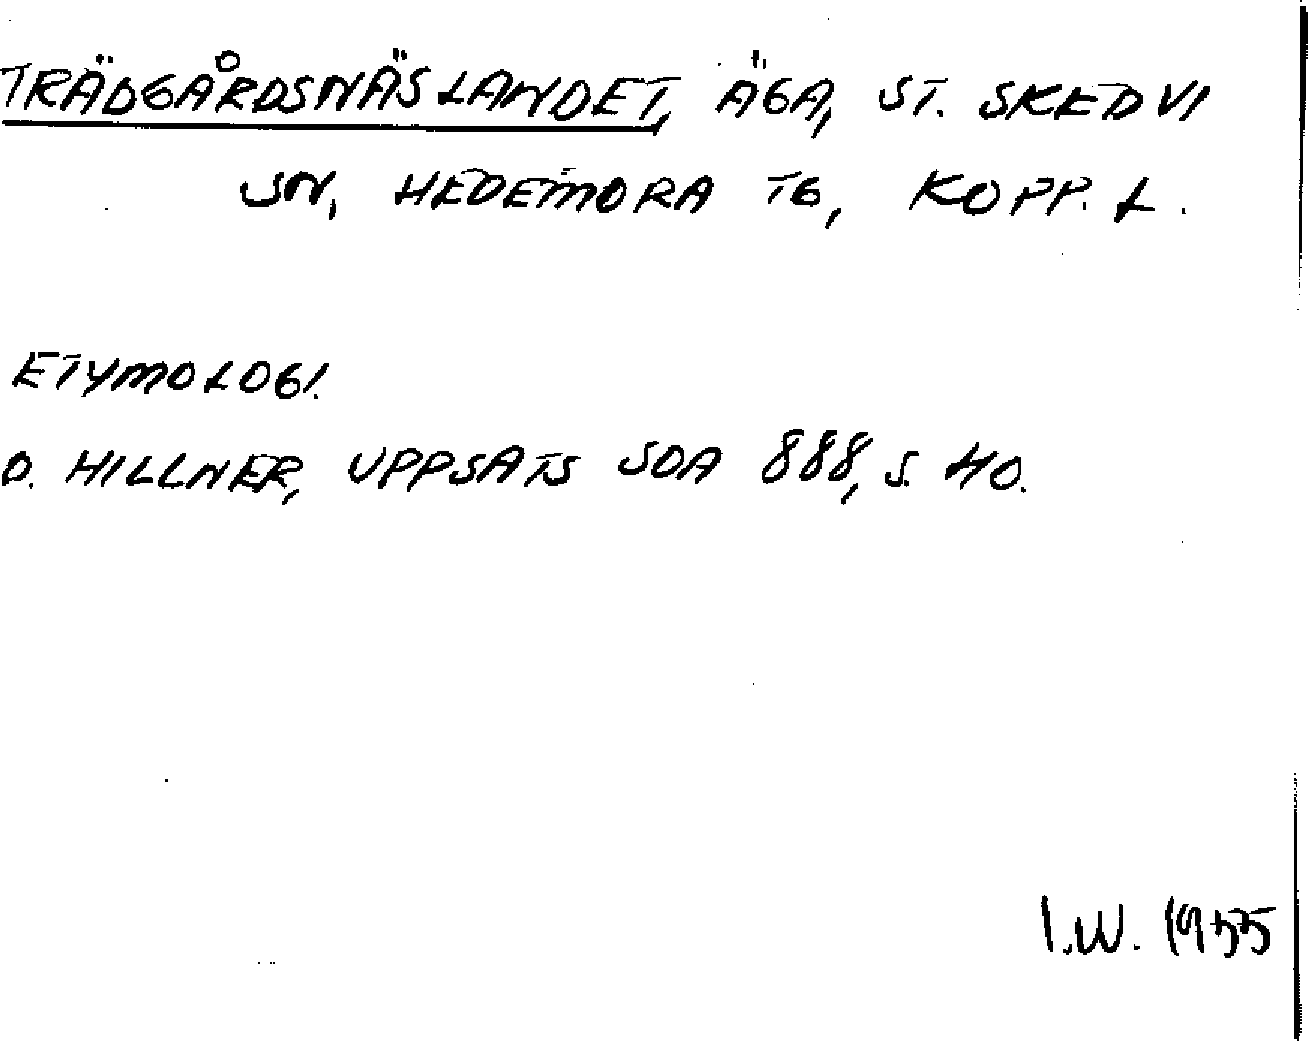 TRÄDGÅRDSNÄSLANDET, ÄGA, ST. SKEDVI
SN, HEDEMORA TG, KOPP. L.
ETYMOLOGI.
O. HILLNER, UPPSATS SOA 888, S. 40.
I.W. 1955